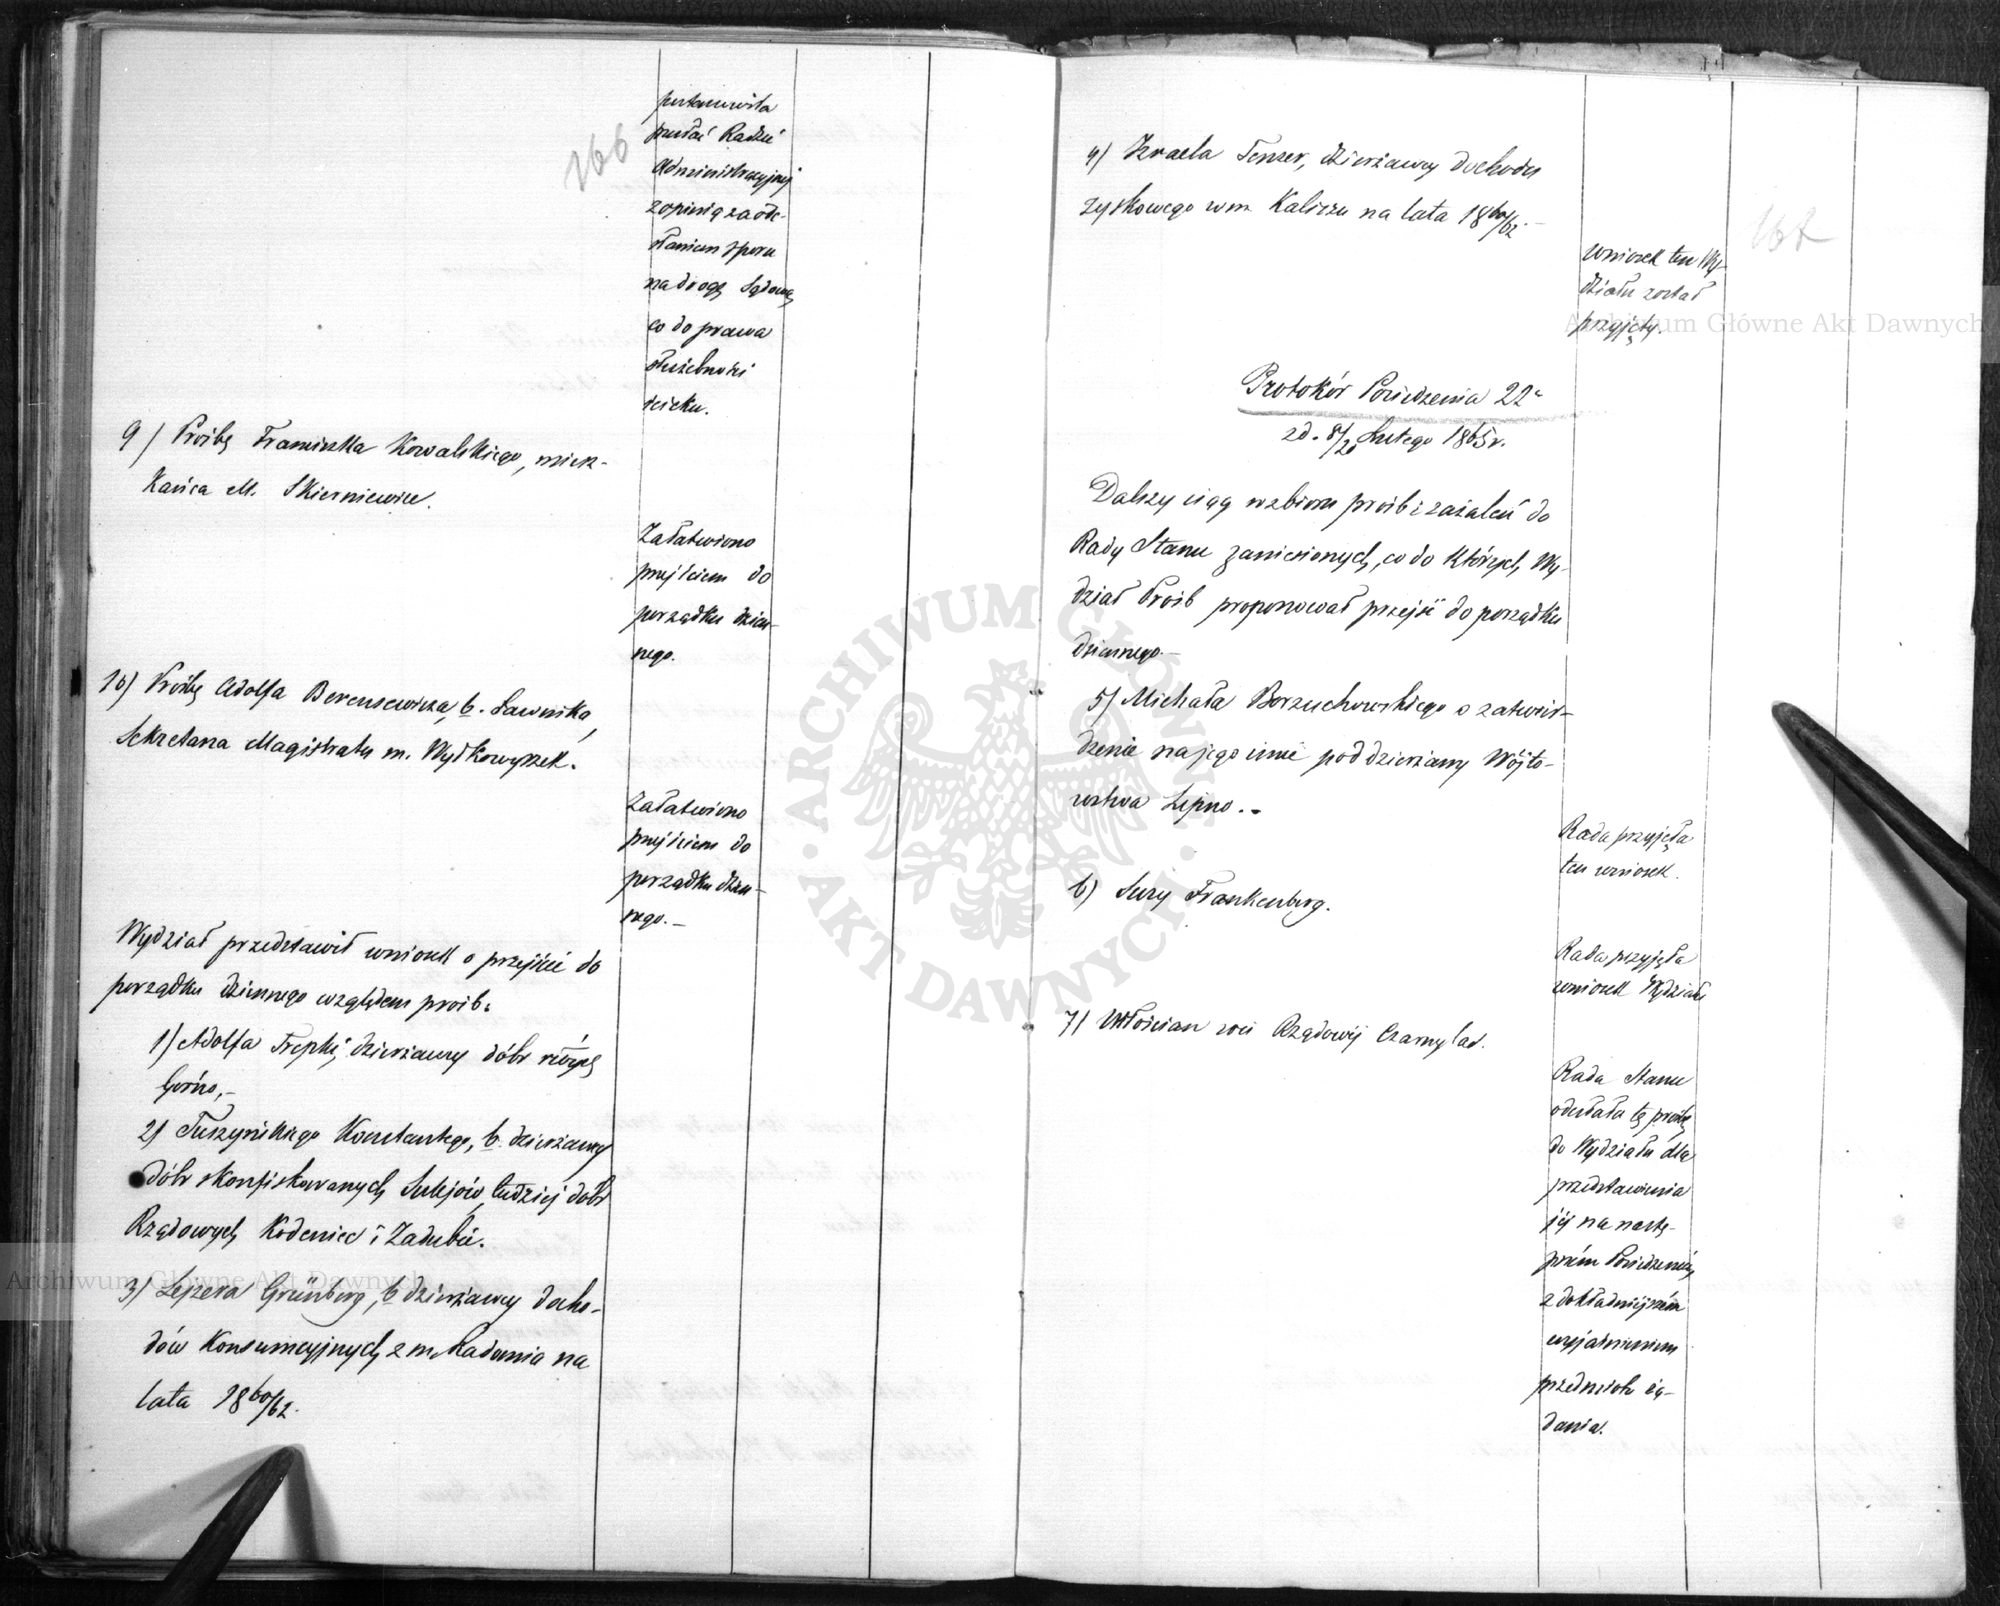 166
postanowiła
przesłać Radzie
Administracyjnej
z opinią za ode-
słaniem sporu
na drogę Sądową
co do prawa
służebności
ścieku.
9) Prośbę Franciszka Kowalskiego, miesz-
kańca M. Skierniewice.
Załatwiono
przejściem do
porządku dzien-
nego.
10) Prośbę Adolfa Berensewicza, b. Ławnika,
Sekretarza Magistratu m. Wyłkowyszek.
Załatwiono
przejściem do
porządku dzien-
nego.—
Wydział przedstawił wniosek o przejście do
porządku dziennego względem prośb:
1) Adolfa Trepki, dzierżawcy dóbr
Górno,—
2) Tuszyńskiego Konstantego, b. dzierżawcy
dóbr skonfiskowanych Sulejów, tudzież dóbr
Rządowych Kodeniec i Zadubie.
3) Lejzera Grünberg, b dzierżawcy docho-
dów Konsumcyjnych z m. Radomia na
lata 1860/62.
167
4) Izraela Tenzer, dzierżawcy dochodu
zyskowego w m. Kaliszu na lata 1860/62.—
wniosek ten Wy-
działu został
przyjęty.
Protokół Posiedzenia 22
z d. 8/20 Lutego 1865 r.
Dalszy ciąg rozbioru próśb i zażaleń do
Rady Stanu zaniesionych, co do których Wy-
dział Próśb proponował przejść do porządku
dziennego.—
5) Michała Borzuchowskiego o zatwier-
dzenie na jego imie poddzierżawy Wójto-
wstwa Lipno.—
Rada przyjęła
ten wniosek.
6) Sury Frankenberg.
Rada przyjęła
wniosek Wydziału
7) Włościan wsi Rządowej Czarnylas.
Rada Stanu
odesłała tę prośbę
do Wydziału dla
przedstawienia
jej na nastę-
pném Posiedzeniu
z dokładniejszém
wyjaśnieniem
przedmiotu żą-
dania.
Archiwum Główne Akt Dawnych
Archiwum Główne Akt Dawnych
ARCHIWUM GŁÓWNE
AKT DAWNYCH